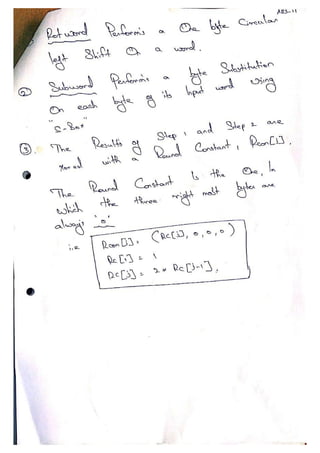 AES-11
Rotword Performs a One byte Circular
left Shift On a word.
② Subword Performs a byte Substitution
On each byte of its Input word Using
"S-Box"
③. The Results of Step 1 and Step 2 are
Xor ed with a Round Constant, Rcon[i].
The Round Constant is the One, In
which the three right most bytes are
always '0'
i.e Rcon[j] = (RC[j], 0, 0, 0)
RC[1] = 1
RC[j] = 2 * RC[j-1],